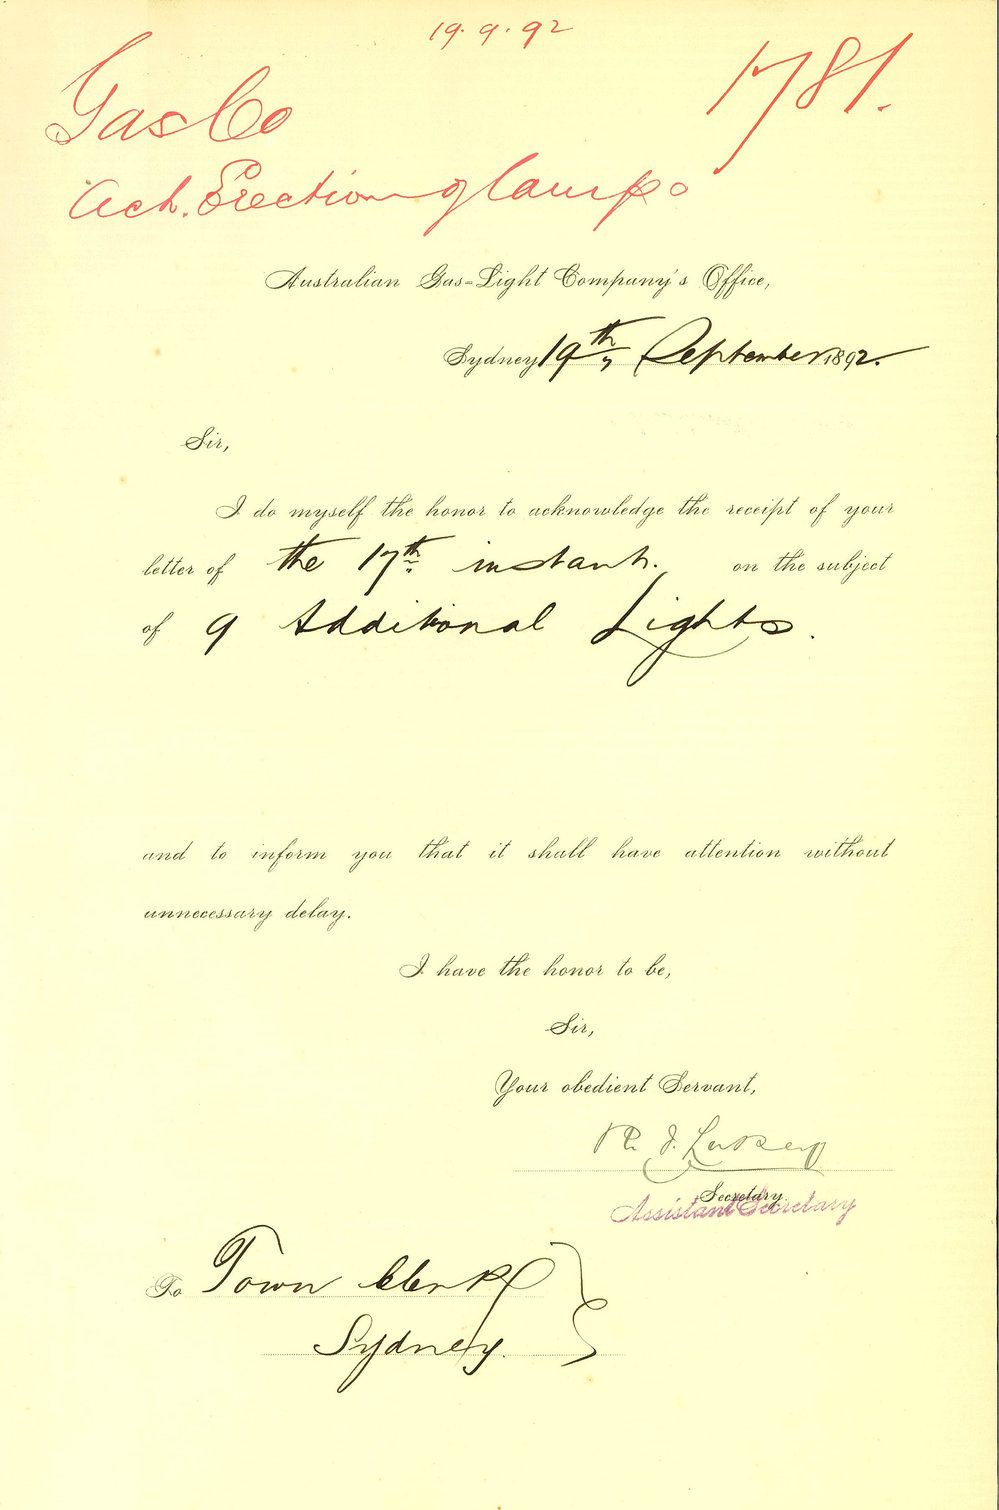 19.9.92
1781.
Gas Co
Ack. Erection of Lamps
Australian Gas=Light Company's Office,
Sydney 19th September 1892.
Sir,
I do myself the honor to acknowledge the receipt of your
letter of the 17th instant. on the subject
of 9 Additional Lights.
and to inform you that it shall have attention without
unnecessary delay.
I have the honor to be,
Sir,
Your obedient Servant,
Secretary.
Assistant Secretary
To Town Clerk
Sydney.